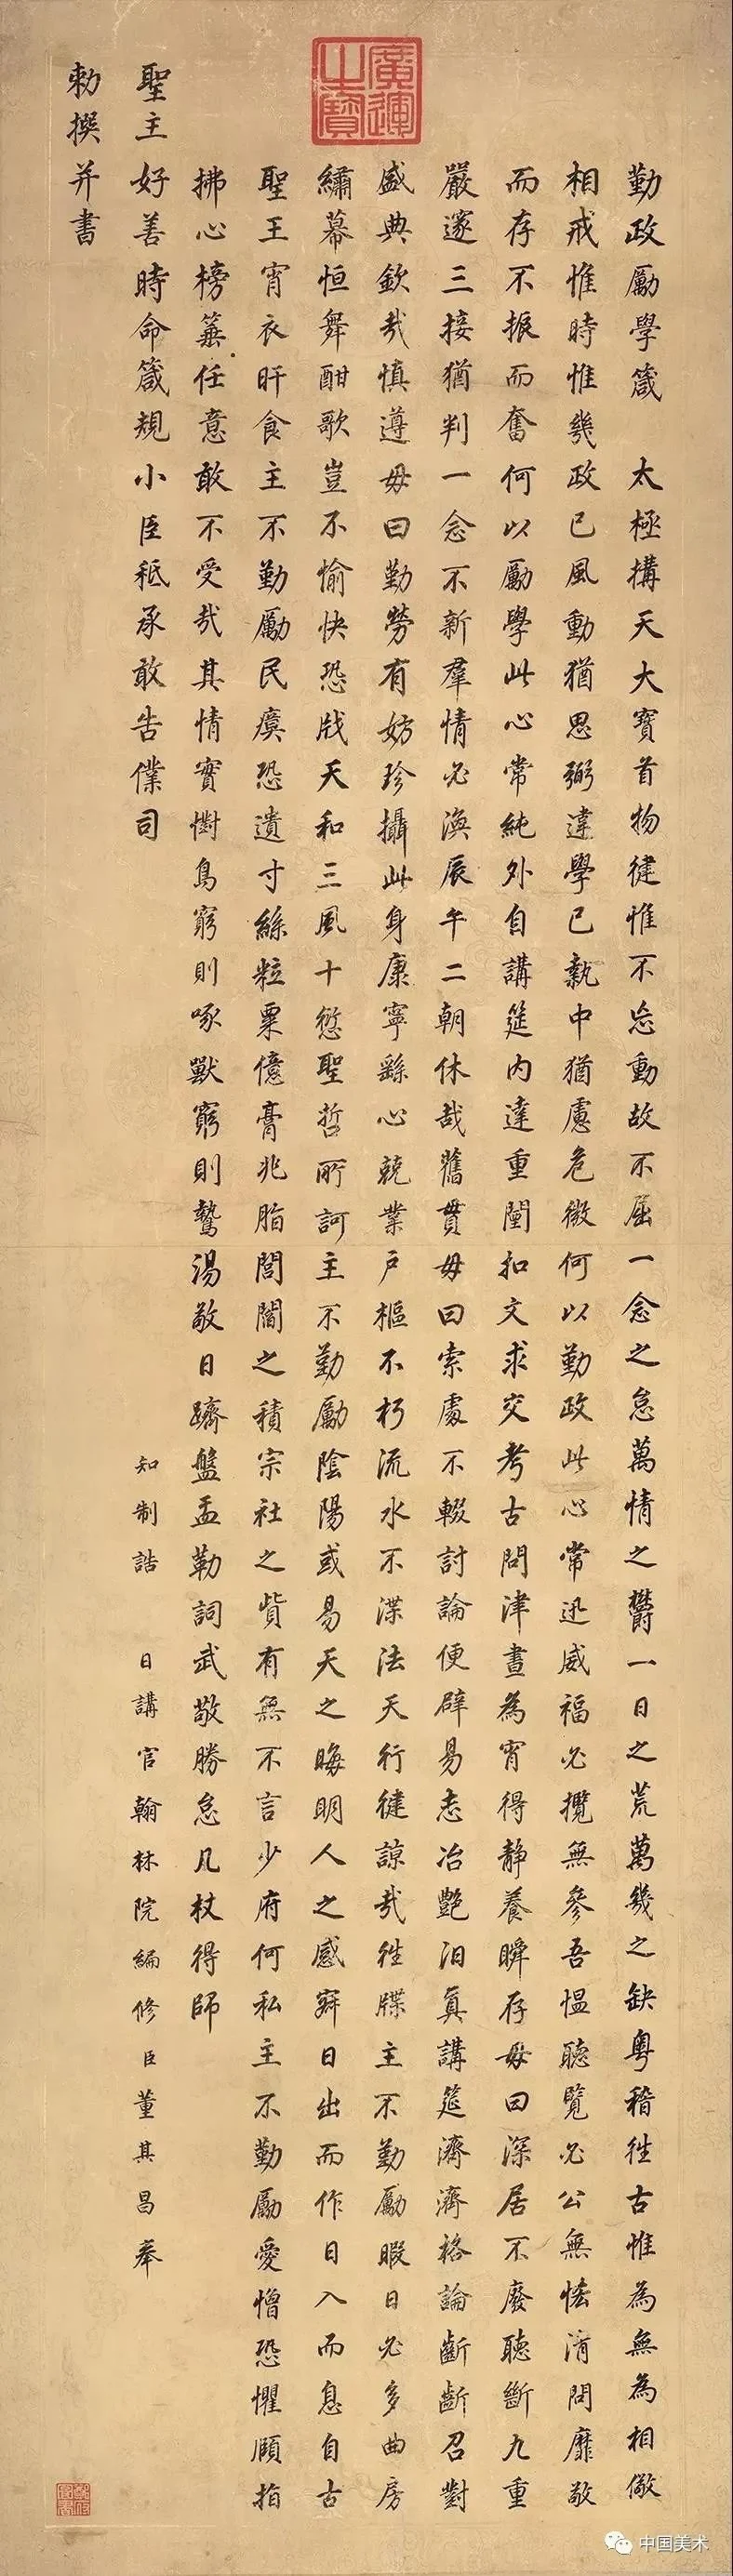 廣運之寶
勤政勵學箴 太極搆天大寶首物健惟不忘動故不屈一念之怠萬情之欝一日之荒萬幾之缺粵稽徃古惟為無為相儆
相戒惟時惟幾政已風動猶思弼違學已執中猶慮危微何以勤政此心常迅威福必攬無參吾愠聽覽必公無恡清問靡敬
而存不振而奮何以勵學此心常純外自講筵內達重闉扣文求交考古問津晝為宵得静養瞬存毋曰深居不廢聽斷九重
嚴邃三接猶判一念不新羣情必渙辰午二朝休哉舊貫毋曰索處不輟討論便辟易志冶艷汨真講筵濟濟格論齗齗召對
盛典欽哉慎遵毋曰勤勞有妨珍攝此身康寧繇心兢業戶樞不朽流水不渫法天行健諒哉徃牒主不勤勵暇日必多曲房
繡幕恒舞酣歌豈不愉快恐戕天和三風十愆聖哲所訶主不勤勵陰陽或易天之晦明人之感寤日出而作日入而息自古
聖王宵衣旰食主不勤勵民瘼恐遺寸絲粒粟億膏兆脂閭閻之積宗社之貲有無不言少府何私主不勤勵愛憎恐懼頤指
拂心榜箠任意敢不受哉其情實懟鳥窮則啄獸窮則鷙湯敬日躋盤盂勒詞武敬勝怠几杖得師
聖主好善時命箴規小臣秪承敢告僕司 知制誥 日講官翰林院編修臣董其昌奉
勅撰并書
中国美术